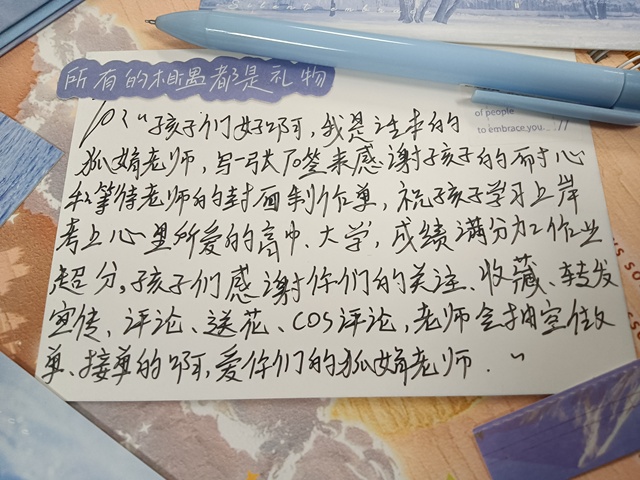 所有的相遇都是礼物
of people
to embrace you.
“孩子们好啊,我是注本的
狐娟老师,写一张加签来感谢孩子的耐心
和等待老师的封面制作单,祝孩子学习上岸
考上心里所爱的高中、大学,成绩满分加作业
超分。孩子们感谢你们的关注、收藏、转发
宣传、评论、送花、COS评论,老师会抽空做
单、接单的啊,爱你们的狐娟老师.”